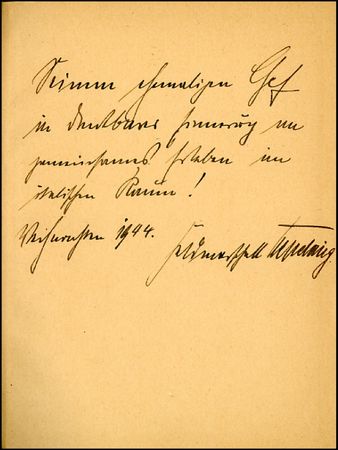 Seinem ehemaligen Chef
in dankbarer Erinnerung an
gemeinsames Erleben im
italischen Raum!
Weihnachten 1944.
Feldmarschall Kesselring